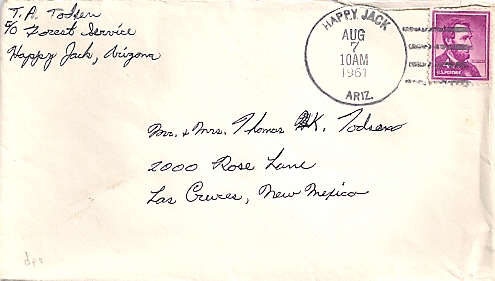 T. A. Todsen
c/o Forest Service
Happy Jack, Arizona
HAPPY JACK
AUG
7
10AM
1961
ARIZ.
U.S. POSTAGE
Mr. & Mrs. Thomas K. Todsen
2000 Rose Lane
Las Cruces, New Mexico